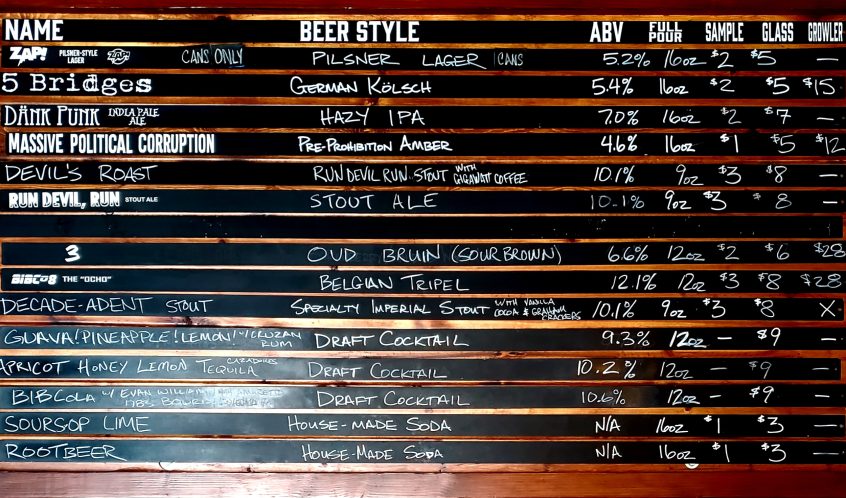 NAME BEER STYLE ABV FULL POUR SAMPLE GLASS GROWLER
ZAP! PILSNER-STYLE LAGER ZAP! CANS ONLY PILSNER LAGER CANS 5.2% 16oz $2 $5 —
5 Bridges GERMAN KÖLSCH 5.4% 16oz $2 $5 $15
DÄNK PUNK INDIA PALE ALE HAZY IPA 7.0% 16oz $2 $7 —
MASSIVE POLITICAL CORRUPTION PRE-PROHIBITION AMBER 4.6% 16oz $1 $5 $12
DEVIL'S ROAST RUN DEVIL RUN STOUT WITH GIGAWATT COFFEE 10.1% 9oz $3 $8 —
RUN DEVIL, RUN STOUT ALE STOUT ALE 10.1% 9oz $3 $8 —
3 OUD BRUIN (SOUR BROWN) 6.6% 12oz $2 $6 $28
BIBCO8 THE "OCHO" BELGIAN TRIPEL 12.1% 12oz $3 $8 $28
DECADE-ADENT STOUT SPECIALTY IMPERIAL STOUT WITH VANILLA COCOA & GRAHAM CRACKERS 10.1% 9oz $3 $8 X
GUAVA!PINEAPPLE!LEMON! W/CRUZAN RUM DRAFT COCKTAIL 9.3% 12oz — $9 —
APRICOT HONEY LEMON TEQUILA CAZADORES DRAFT COCKTAIL 10.2% 12oz — $9 —
BIBCOLA W/ EVAN WILLIAMS 1783 BOURBON DRAFT COCKTAIL 10.6% 12oz — $9 —
SOURSOP LIME HOUSE-MADE SODA N/A 16oz $1 $3 —
ROOTBEER HOUSE-MADE SODA N/A 16oz $1 $3 —